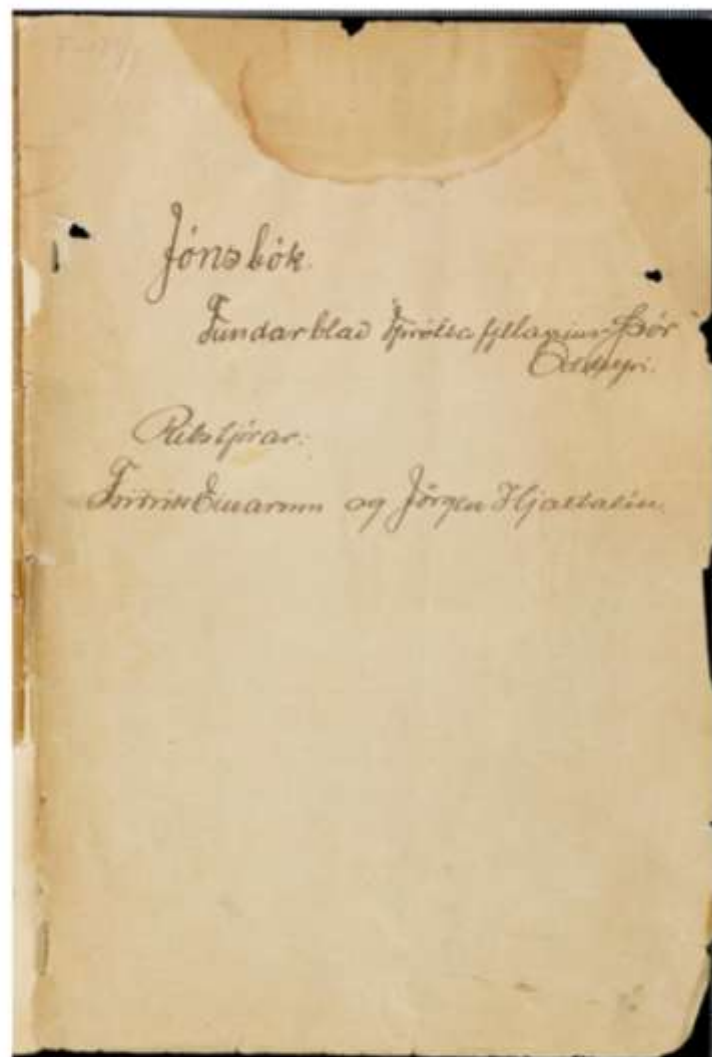 Jónsbók.
Fundarblað Íþróttafjelagsins Þór
Oddeyri.
Ritstjórar:
Friðrik Einarsson og Jörgen Hjaltalín.